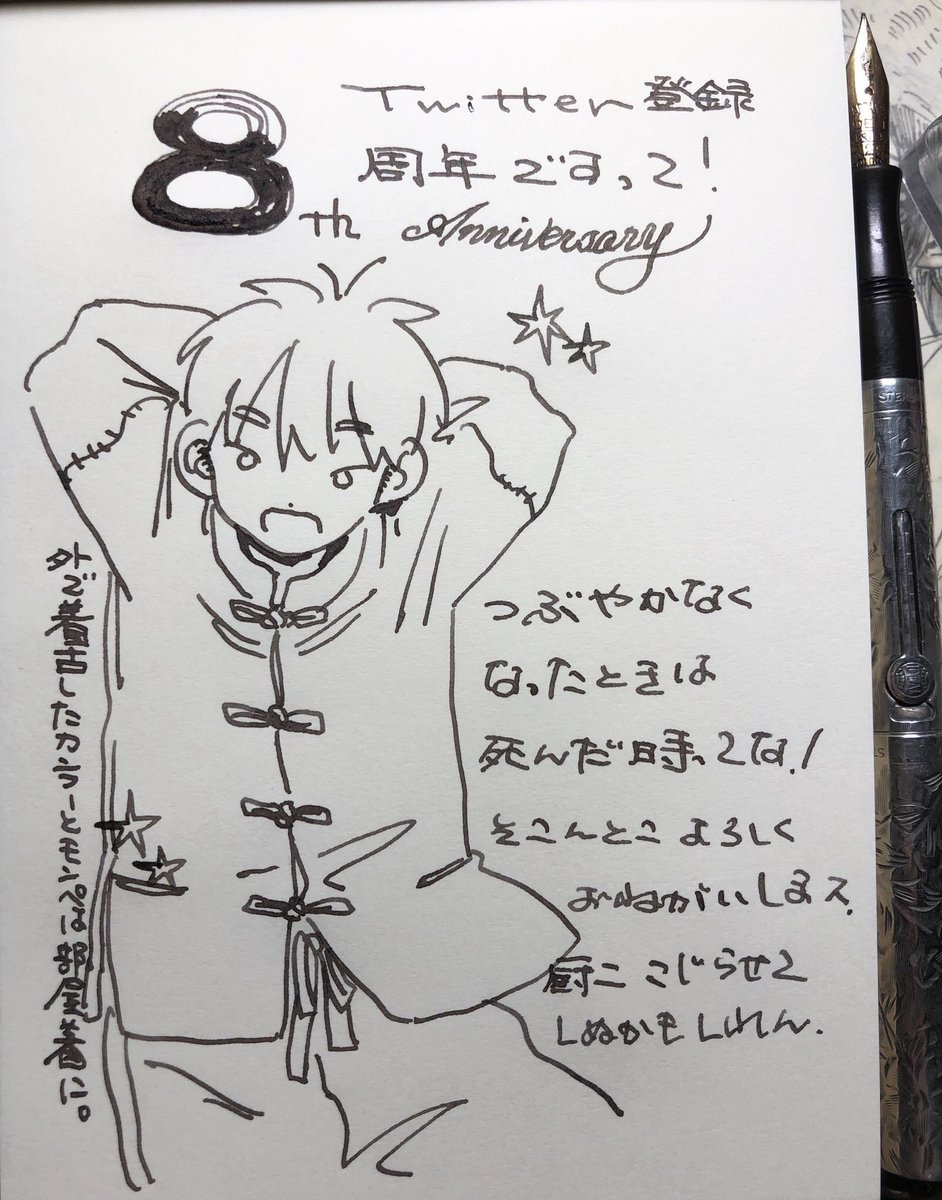 8th
Twitter登録
周年ですって!
Anniversary
つぶやかなく
なったときは
死んだ時ってな!
そこんとこ よろしく
おねがいします.
厨二 こじらせて
しぬかもしれん.
外で着古したカンラーとモンペは部屋着に。